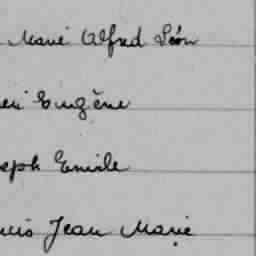 Marie Alfred Léon
Eugène
seph Emile
Jean Marie